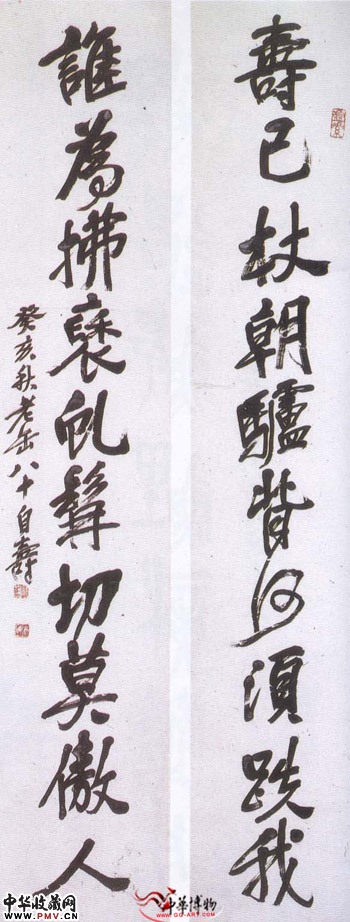 壽已杖朝驢背何須跌我
誰為拂褎虬髯切莫傲人
癸亥秋老缶八十自壽
中华收藏网
www.PMV.CN
中華博物
WWW.GG-ART.COM